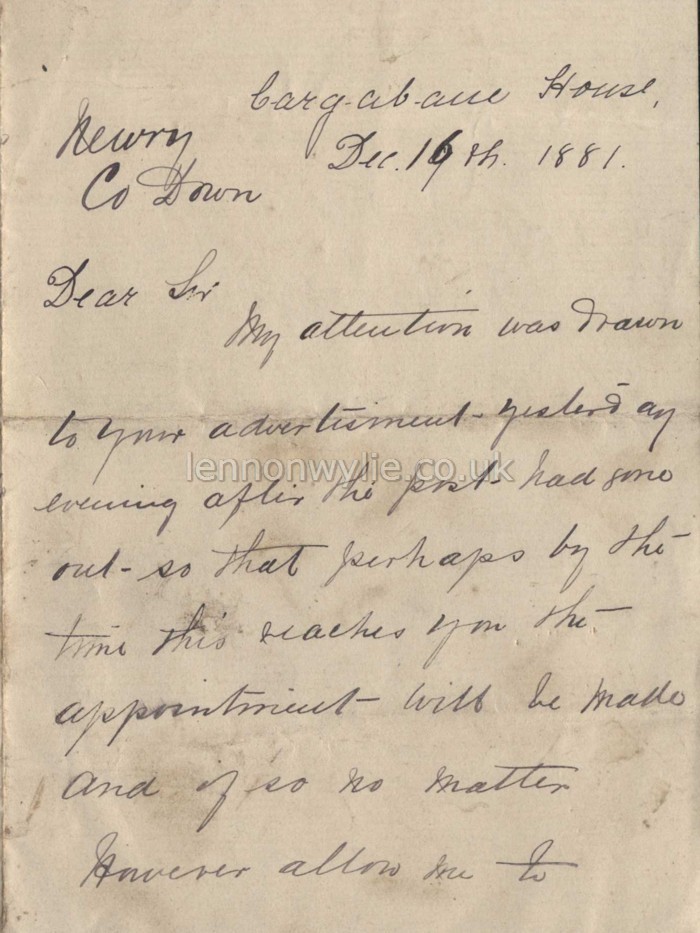 Carg-ab-ane House,
Newry
Dec. 16th. 1881.
Co Down
Dear Sir
My attention was drawn
to your advertisment - yesterday
lennonwylie.co.uk
evening after the post had gone
out - so that perhaps by the
time this reaches you the
appointment will be made
and if so no matter
However allow me to